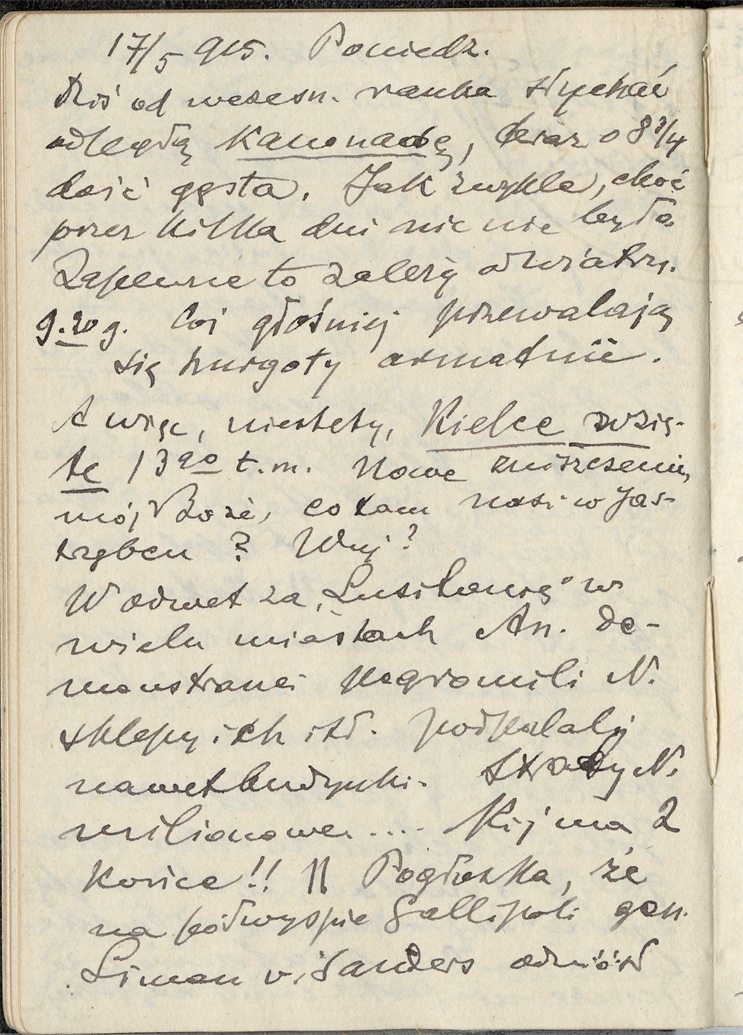 17/5 915. Poniedz.
Dziś od wczesn. ranka słychać
odległą kanonadę, teraz o 8 3/4
dość gęsta. Jak zwykle, choć
przez kilka dni nic nie było.
Zapewne to zależy od wiatru.
9.20 g. Coś głośniej przewalają
się hurgoty armatnie.
A więc, niestety, Kielce wzię-
te 13go t.m. Nowe zniszczenie,
mój Boże, co tam nasi w Jas-
trzębcu? Wuj?
W odwet za „Lusitanię" w
wielu miastach An. de-
monstranci pogromili N.
sklepy ich itd. podpalali
nawet budynki. Straty N.
milionowe.... Kij ma 2
końce!! || Pogłoska, że
na półwyspie Gallipoli gen.
Liman v. Sanders odniósł